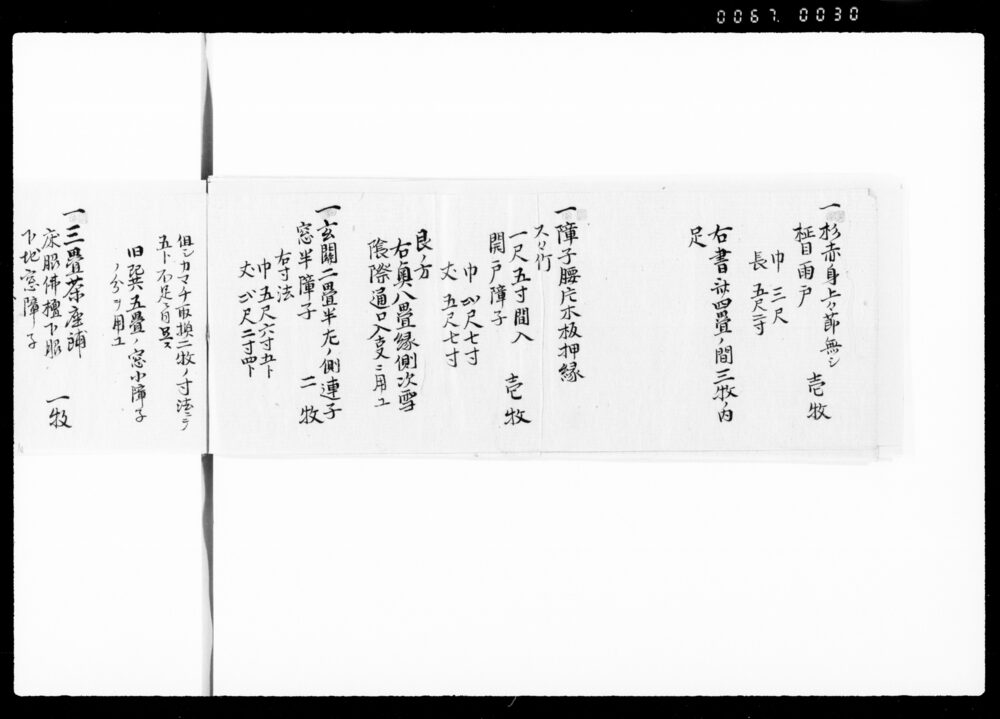 0067. 0030
一 杉赤身上々節無シ
柾目雨戸 壱牧
巾 三尺
長 五尺二寸
右書社四畳ノ間三牧ノ内
足
一 障子腰片木板押縁
スス竹
一尺五寸間入
開戸障子 壱牧
巾 尺七寸
丈 五尺七寸
艮ノ方
右奥八畳縁側次雪
隠際通口入口ニ用ユ
一 玄関二畳半左ノ側連子
窓半障子 二牧
右寸法
巾五尺六寸五卜
丈 尺二寸四卜
但シカマチ取換二牧ノ寸法ニテ
五卜不足
旧 五畳ノ窓小障子
ノ分ヲ用ユ
一 三畳茶座鋪
床脇佛檀下脇 一牧
下地窓障子